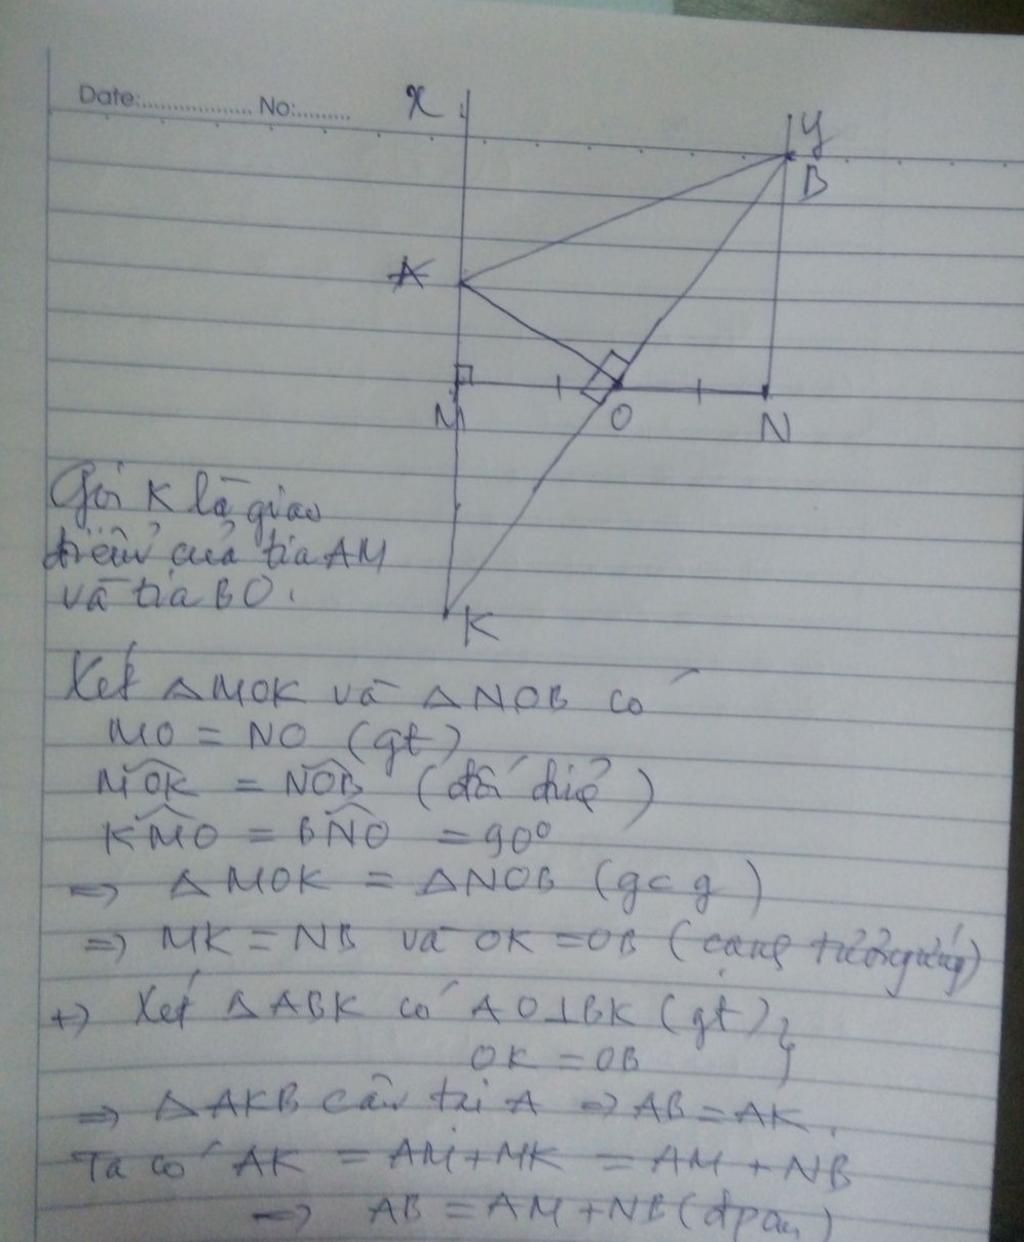 Date:.................... No:.........
x
y
B
A
M
O
N
Gọi K là giao
điểm của tia AM
và tia BO.
K
Xét △MOK và △NOB có
MO = NO (gt)
MÔK = NÔB (đối đỉnh)
KM̂O = BN̂O = 90°
=> △MOK = △NOB (g c g)
=> MK = NB và OK = OB (cạnh tương ứng)
+) Xét △ABK có AO⊥BK (gt) }
OK = OB
=> △AKB cân tại A => AB = AK.
Ta có AK = AM + MK = AM + NB
=> AB = AM + NB (đpcm)